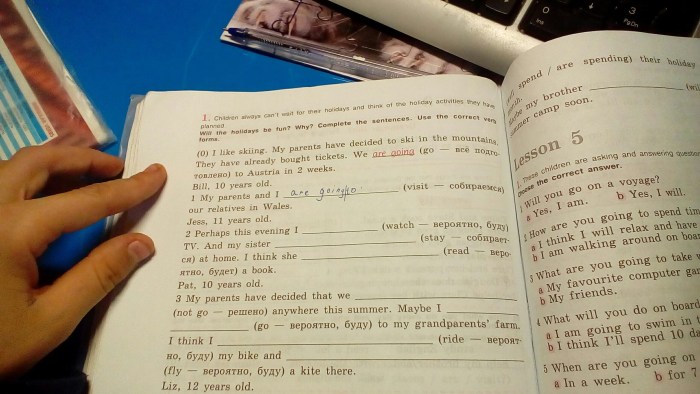 1. Children always can't wait for their holidays and think of the holiday activities they have
planned.
Will the holidays be fun? Why? Complete the sentences. Use the correct verb
forms.
(0) I like skiing. My parents have decided to ski in the mountains.
They have already bought tickets. We are going (go — всё подго-
товлено) to Austria in 2 weeks.
Bill, 10 years old.
1 My parents and I are going to (visit — собираемся)
our relatives in Wales.
Jess, 11 years old.
2 Perhaps this evening I (watch — вероятно, буду)
TV. And my sister (stay — собирает-
ся) at home. I think she (read — веро-
ятно, будет) a book.
Pat, 10 years old.
3 My parents have decided that we
(not go — решено) anywhere this summer. Maybe I
(go — вероятно, буду) to my grandparents' farm.
I think I (ride — вероят-
но, буду) my bike and
(fly — вероятно, буду) a kite there.
Liz, 12 years old.
spend / are spending) their holiday
my brother
camp soon.
Lesson 5
These children are asking and answering
the correct answer.
1 Will you go on a voyage?
a Yes, I am. b Yes, I will.
2 How are you going to spend
a I think I will relax and have
b I am walking around on
3 What are you going to take
a My favourite computer
b My friends.
4 What will you do on board
a I am going to swim in
b I think I'll spend 10
5 When are you going on
a In a week. b for 7
0
Ins
3
PgDn